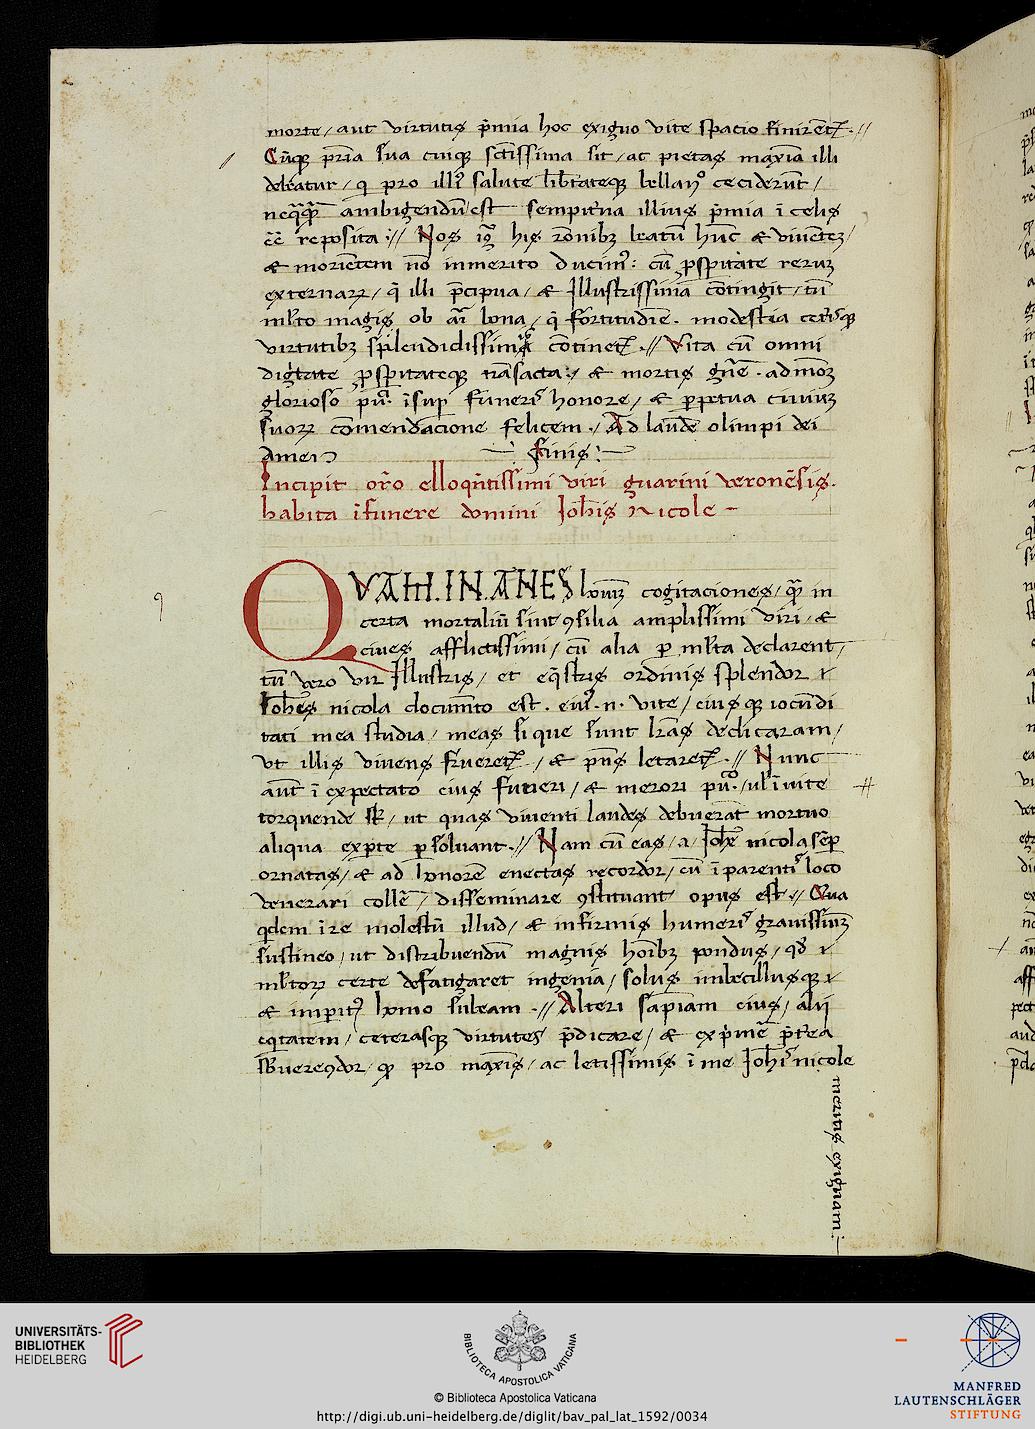 morte / aut virtutis p̄mia hoc exiguo vite spacio finirēt᷑. //
Cūq̄ȝ pr̄ia sua cuiqȝ sctīssima sit / ac pietas maxīa illi
debeatur / q pro illiꝰ salute lib̄tateqȝ bellanꝰ ceciderūt /
neq̄q̄ꝫ ambigendū est sempitna illius p̄mia ī celis
eē reposita :// Nos ig̃ his rōnibȝ beatū hūc & viuētēȝ /
& moriētem nō inmerito ducimꝰ : cū ꝓsp̄itate rerūȝ
externarꝝ / q̄ illi p̄cipua / & Illustrissima cōtingit / tū
ml̄to magis ob aī bona / q̄ fortitudīe . modestia ceterisqȝ
virtutibȝ splendidissimis cōtinet᷑ . // Vita cū omni
dig̃tate ꝓsp̄itateqȝ trāsacta :, & mortis gn̄e . admōȝ
glorioso p̄u᷑ . īsup funeris honore / & perpetua ciuiūȝ
suorꝝ cōmendacione felicem . / Ad laudē olimpi dei
Amen — Finis : —
Incipit or̄o elloquētissimi viri guarini veronēsis .
habita ī funere domini Joh̄is Nicole –
QVAM . IN . ANES hoīuȝ cogitaciones / q̄ꝫ in
certa mortaliū sint ꝯsilia amplissimi viri / &
ciues afflictissimi / cū alia p ml̄ta declarent /
tū vero vir Illustris / et eq̄stris ordinis splendor
Joh̄es nicola documēto est . eiuꝰ . n . vite / eiusqȝ iocūdi
tati mea studia / meas si que sunt lr̄as dedicaram /
vt illis viuens frueret᷑ , / & p̄ns letaret᷑ . // Nunc
aūt ī expectato eius funeri / & merori / vl̓ īuite
torquende st̄ / ut quas viuenti laudes debuerāt mortuo
aliqua ex pte psoluant . // Nam cū eas / a / Joh̄e nicola sēp
ornatas / & ad honorē euectas recordor / cū ī parentis loco
venerari collē / disseminare ꝯstituant opus est :/ Qua
qdem ī re molestū illud / & infirmis humeris grauissimūȝ
sustineo / ut distribuendū magnis hoībȝ pondus / qd̓
ml̄torꝝ certe defatigaret ingenia / solus imbecillusqȝ
& imp̄itꝰ homo subeam . // Alteri sapīam eius / alij
eq̄tatem / ceterasqȝ virtutes p̄dicare / & exp̄mē p̄t̓ea
sb̄uereꝯdor / qꝫ pro maxīs / ac letissimis ī me Joh̄is nicole
meritis exiguam :–
UNIVERSITÄTS-
BIBLIOTHEK
HEIDELBERG
BIBLIOTECA APOSTOLICA VATICANA
© Biblioteca Apostolica Vaticana
http://digi.ub.uni-heidelberg.de/diglit/bav_pal_lat_1592/0034
MANFRED
LAUTENSCHLÄGER
STIFTUNG